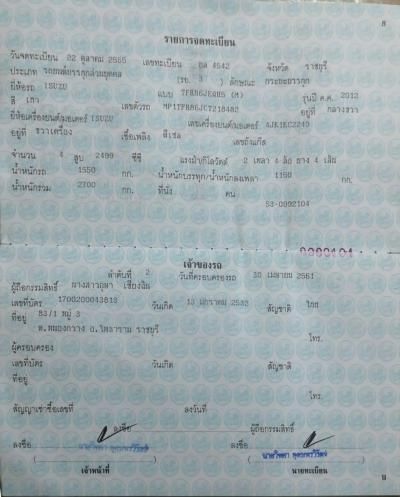 8
รายการจดทะเบียน
วันจดทะเบียน 22 ตุลาคม 2555 เลขทะเบียน 4542 จังหวัด ราชบุรี
ประเภท รถยนต์บรรทุกส่วนบุคคล (รย. 3 ) ลักษณะ กระบะบรรทุก
ยี่ห้อรถ ISUZU แบบ (M) รุ่นปี ค.ศ. 2012
สี เทา เลขตัวรถ MP1TFR86JCT218482 อยู่ที่ กลางขวา
ยี่ห้อเครื่องยนต์/มอเตอร์ ISUZU เลขเครื่องยนต์/มอเตอร์ 4JK1KC2240
อยู่ที่ ขวาเครื่อง เชื้อเพลิง ดีเซล เลขถังแก๊ส
จำนวน 4 สูบ 2499 ซีซี แรงม้า/กิโลวัตต์ 2 เพลา 4 ล้อ ยาง 4 เส้น
น้ำหนักรถ 1550 กก. น้ำหนักบรรทุก/น้ำหนักลงเพลา 1150 กก.
น้ำหนักรวม 2700 กก. ที่นั่ง คน
53-0992104
เจ้าของรถ
ลำดับที่ 2 วันที่ครอบครองรถ 30 เมษายน 2561
ผู้ถือกรรมสิทธิ์ นางสาวอุษา
เลขที่บัตร 1700200043813 วันเกิด 13 มกราคม สัญชาติ ไทย
ที่อยู่ 83/1 หมู่ 3
ต.หนองกวาง อ.โพธาราม ราชบุรี โทร.
ผู้ครอบครอง
เลขที่บัตร วันเกิด สัญชาติ
ที่อยู่
โทร.
สัญญาเช่าซื้อเลขที่ ลงวันที่
ลงชื่อ ผู้ถือกรรมสิทธิ์
ลงชื่อ ลงชื่อ
เจ้าหน้าที่ นายทะเบียน